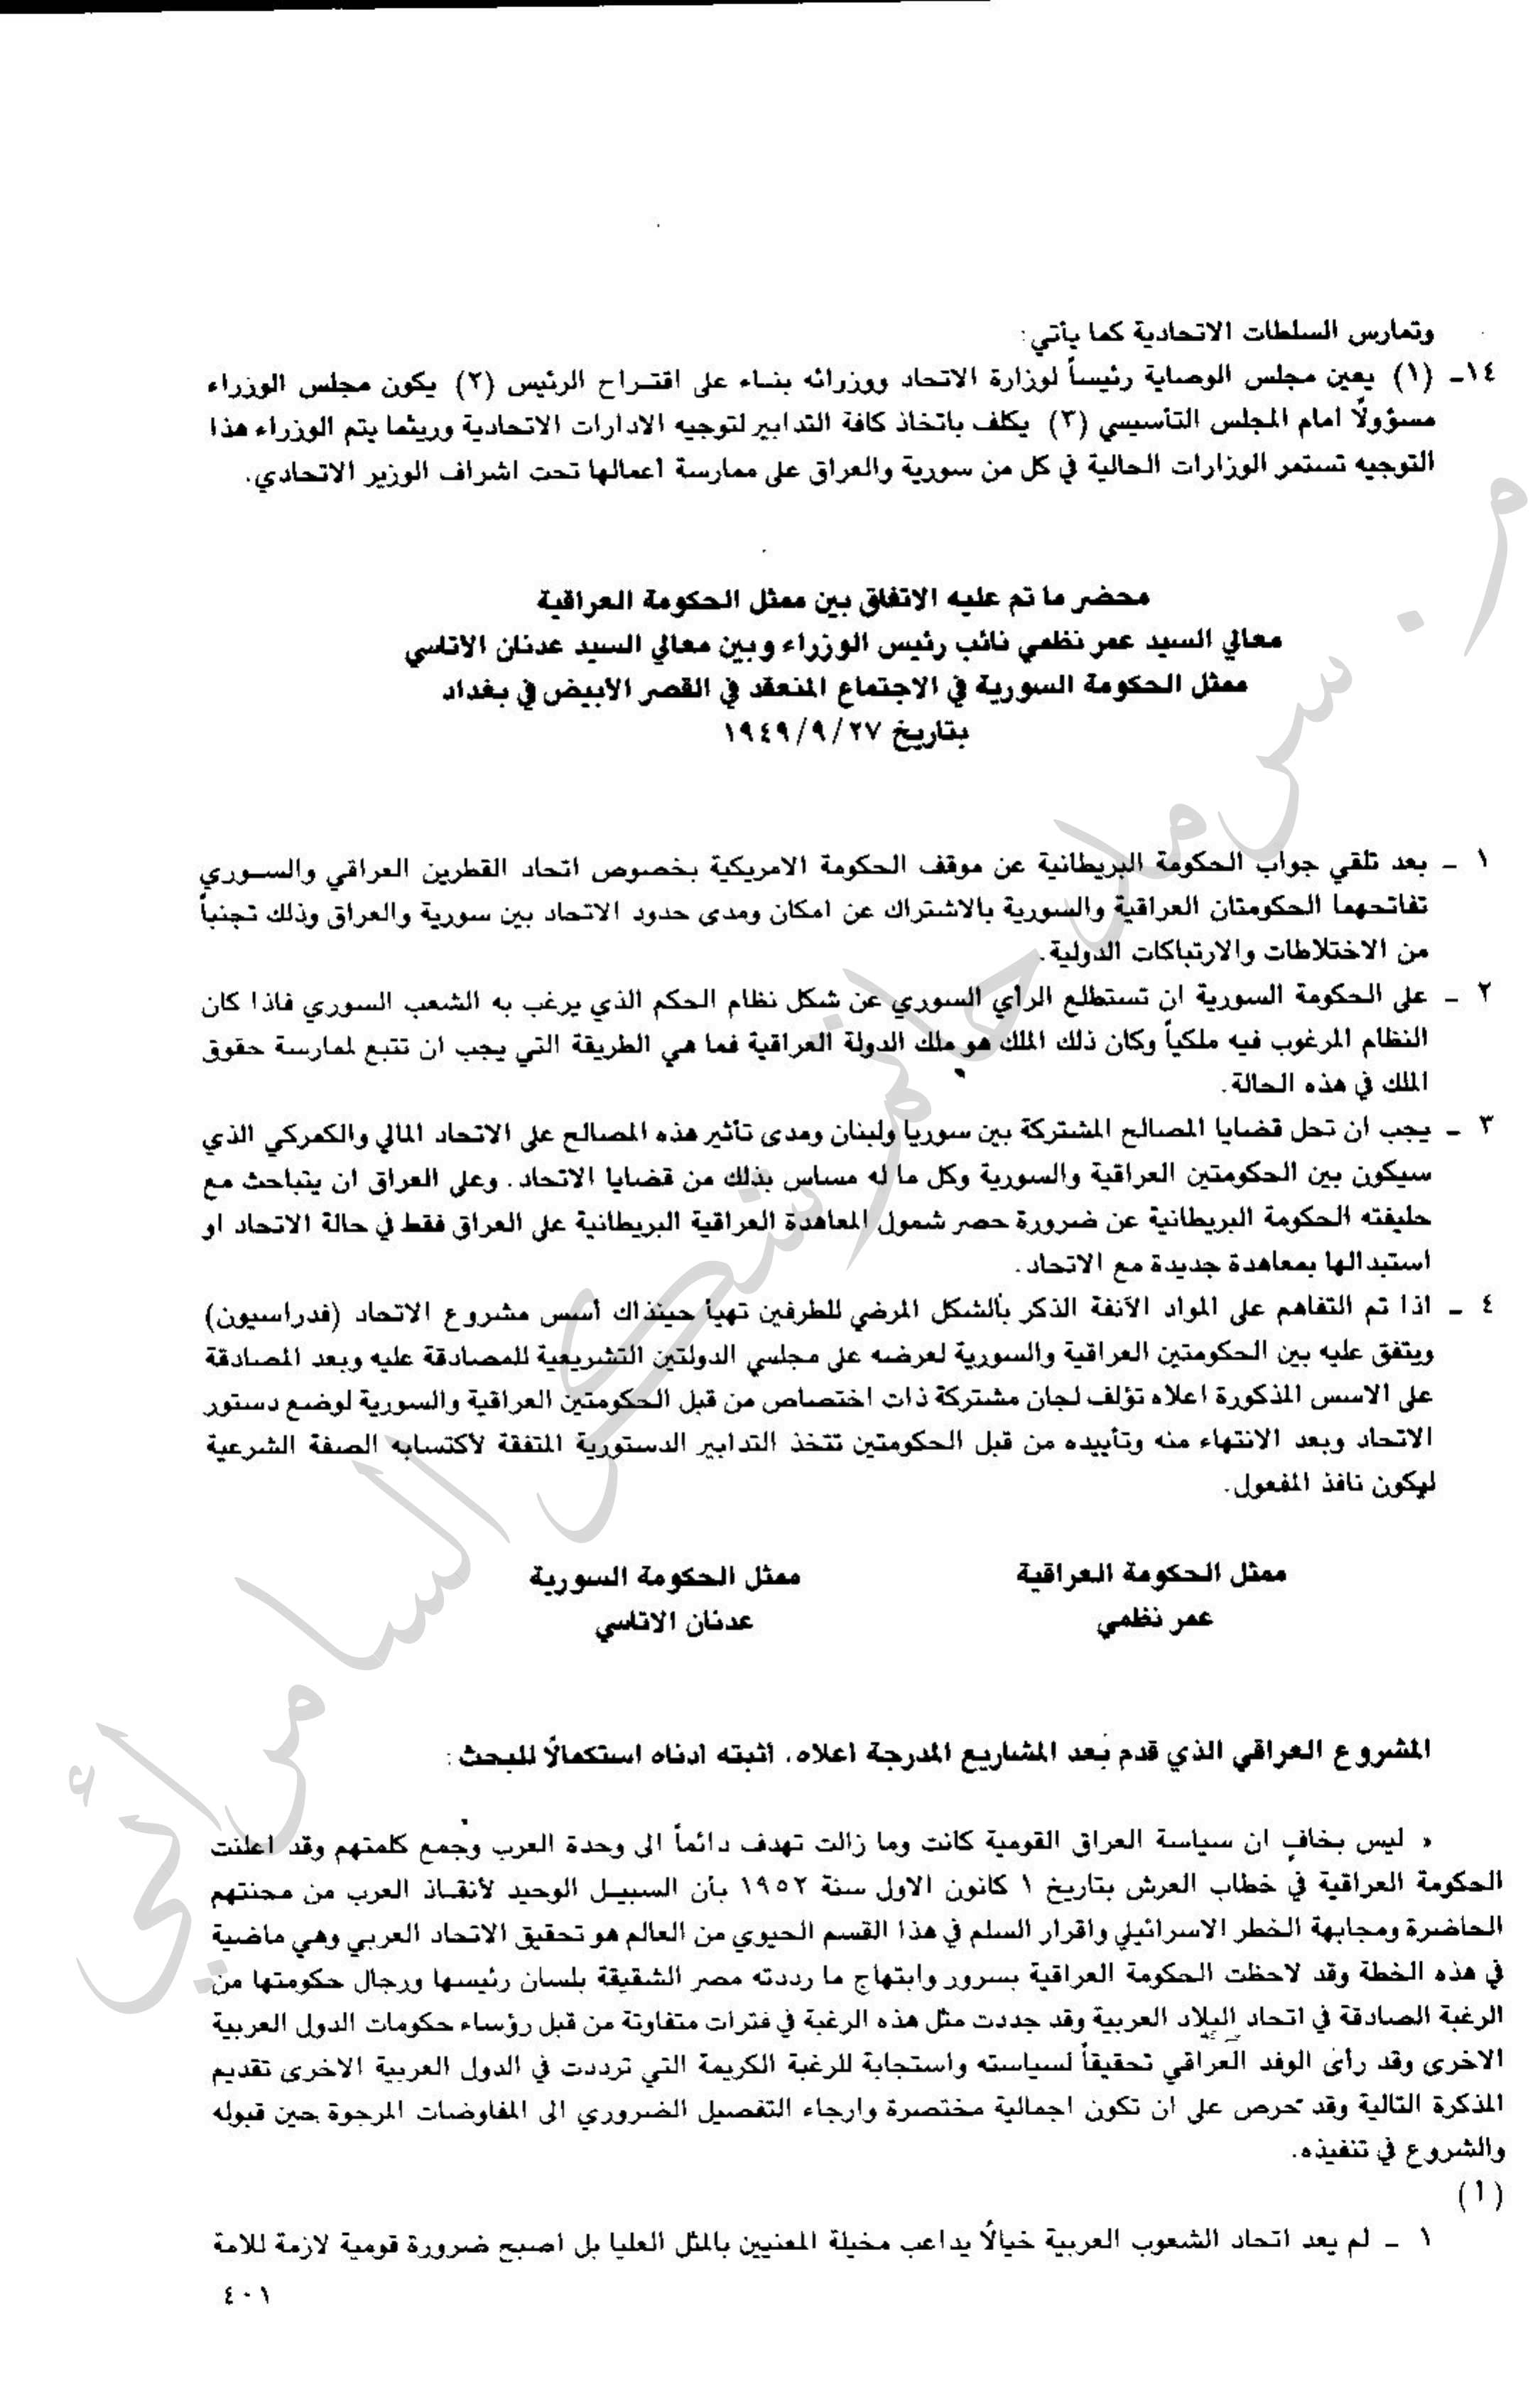 وتمارس السلطات الاتحادية كما يأتي:
١٤ـ (١) يعين مجلس الوصاية رئيساً لوزارة الاتحاد ووزرائه بناء على اقتراح الرئيس (٢) يكون مجلس الوزراء
مسؤولًا امام المجلس التأسيسي (٣) يكلف باتخاذ كافة التدابير لتوجيه الادارات الاتحادية وريثما يتم الوزراء هذا
التوجيه تستمر الوزارات الحالية في كل من سورية والعراق على ممارسة اعمالها تحت اشراف الوزير الاتحادي.
محضر ما تم عليه الاتفاق بين ممثل الحكومة العراقية
معالي السيد عمر نظمي نائب رئيس الوزراء وبين معالي السيد عدنان الاتاسي
ممثل الحكومة السورية في الاجتماع المنعقد في القصر الأبيض في بغداد
بتاريخ ٢٧/ ٩/ ١٩٤٩
١ ـ بعد تلقي جواب الحكومة البريطانية عن موقف الحكومة الامريكية بخصوص اتحاد القطرين العراقي والسوري
تفاتحهما الحكومتان العراقية والسورية بالاشتراك عن امكان ومدى حدود الاتحاد بين سورية والعراق وذلك تجنباً
من الاختلاطات والارتباكات الدولية.
٢ ـ على الحكومة السورية ان تستطلع الرأي السوري عن شكل نظام الحكم الذي يرغب به الشعب السوري فاذا كان
النظام المرغوب فيه ملكياً وكان ذلك الملك هو ملك الدولة العراقية فما هي الطريقة التي يجب ان تتبع لممارسة حقوق
الملك في هذه الحالة.
٣ ـ يجب ان تحل قضايا المصالح المشتركة بين سوريا ولبنان ومدى تأثير هذه المصالح على الاتحاد المالي والكمركي الذي
سيكون بين الحكومتين العراقية والسورية وكل ما له مساس بذلك من قضايا الاتحاد. وعلى العراق ان يتباحث مع
حليفته الحكومة البريطانية عن ضرورة حصر شمول المعاهدة العراقية البريطانية على العراق فقط في حالة الاتحاد او
استبدالها بمعاهدة جديدة مع الاتحاد.
٤ ـ اذا تم التفاهم على المواد الآنفة الذكر بالشكل المرضي للطرفين تهيأ حينذاك أسس مشروع الاتحاد (فدراسيون)
ويتفق عليه بين الحكومتين العراقية والسورية لعرضه على مجلسي الدولتين التشريعية للمصادقة عليه وبعد المصادقة
على الاسس المذكورة اعلاه تؤلف لجان مشتركة ذات اختصاص من قبل الحكومتين العراقية والسورية لوضع دستور
الاتحاد وبعد الانتهاء منه وتأييده من قبل الحكومتين تتخذ التدابير الدستورية المتفقة لأكتسابه الصفة الشرعية
ليكون نافذ المفعول.
ممثل الحكومة العراقية ممثل الحكومة السورية
عمر نظمي عدنان الاتاسي
المشروع العراقي الذي قدم بعد المشاريع المدرجة اعلاه، اثبته ادناه استكمالًا للبحث:
« ليس بخافٍ ان سياسة العراق القومية كانت وما زالت تهدف دائماً الى وحدة العرب وجمع كلمتهم وقد اعلنت
الحكومة العراقية في خطاب العرش بتاريخ ١ كانون الاول سنة ١٩٥٢ بأن السبيل الوحيد لأنقاذ العرب من محنتهم
الحاضرة ومجابهة الخطر الاسرائيلي واقرار السلم في هذا القسم الحيوي من العالم هو تحقيق الاتحاد العربي وهي ماضية
في هذه الخطة وقد لاحظت الحكومة العراقية بسرور وابتهاج ما رددته مصر الشقيقة بلسان رئيسها ورجال حكومتها من
الرغبة الصادقة في اتحاد البلاد العربية وقد جددت مثل هذه الرغبة في فترات متفاوتة من قبل رؤساء حكومات الدول العربية
الاخرى وقد رأى الوفد العراقي تحقيقاً لسياسته واستجابة للرغبة الكريمة التي ترددت في الدول العربية الاخرى تقديم
المذكرة التالية وقد حرص على ان تكون اجمالية مختصرة وارجاء التفصيل الضروري الى المفاوضات المرجوة حين قبوله
والشروع في تنفيذه.
(أ)
١ ـ لم يعد اتحاد الشعوب العربية خيالًا يداعب مخيلة المعنيين بالمثل العليا بل اصبح ضرورة قومية لازمة للامة
٤٠١
من سرمد حاتم شكر السامرائي